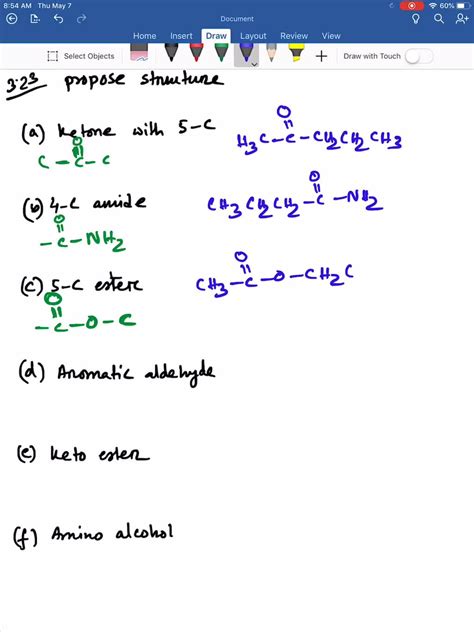 8:54 AM Thu May 7
60%
Document
Home Insert Draw Layout Review View
Select Objects
Draw with Touch
3.23 propose structure
(a) ketone with 5-C
O
C-C-C
O
H3C-C-CH2CH2CH3
(b) 4-C amide
O
-C-NH2
O
CH3CH2CH2-C-NH2
(c) 5-C ester
O
-C-O-C
O
CH3-C-O-CH2C
(d) Aromatic aldehyde
(e) keto ester
(f) Amino alcohol